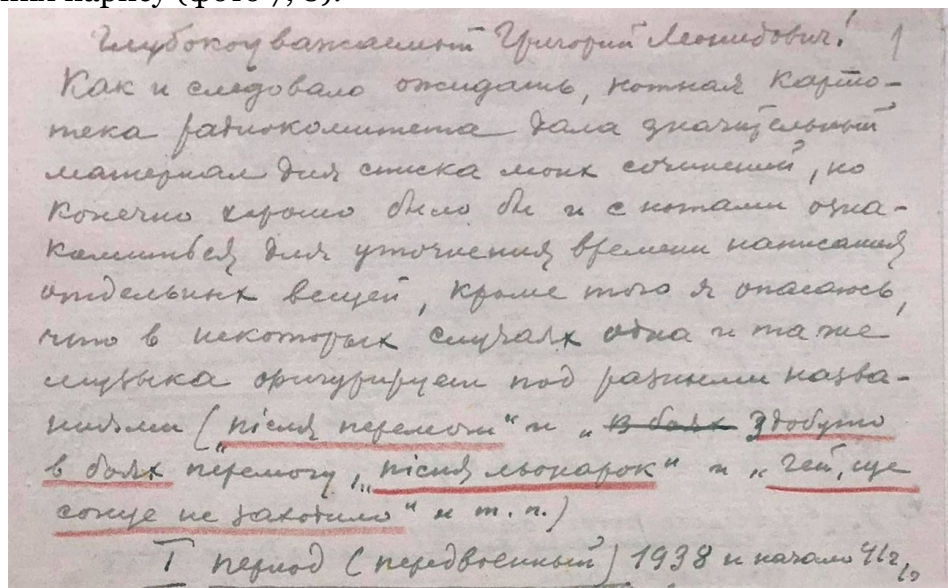 ння нарису (фото 7, 8).
Глубокоуважаемый Григорий Леонидович! 1
Как и следовало ожидать, нотная карто-
тека радиокомитета дала значительный
материал для списка моих сочинений, но
конечно хорошо было бы и с нотами озна-
комиться для уточнения времени написания
отдельных вещей, кроме того я опасаюсь,
что в некоторых случаях одна и та же
музыка фигурирует под разными назва-
ниями ("пісня перемоги" и "в боях здобуто
в боях перемогу", "пісня льонарок" и "Гей, ще
сонце не заходило" и т. п.)
I период (передвоенный) 1938 и начало 41г.